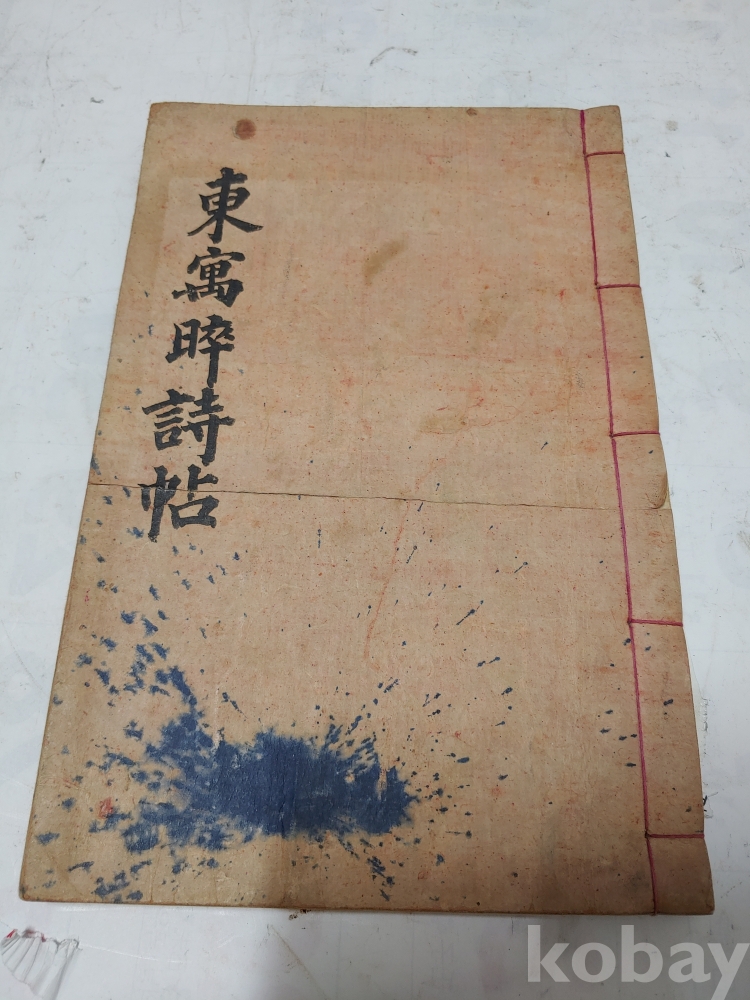 東寓晬詩帖
kobay